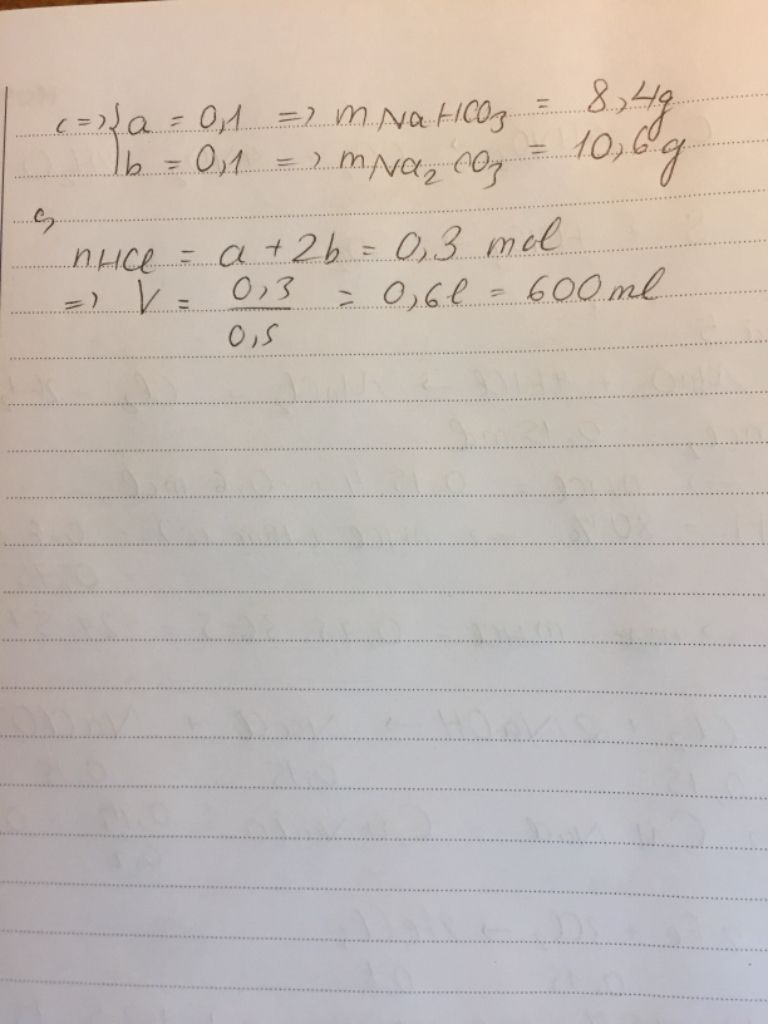 <=> { a = 0,1 => mNaHCO3 = 8,4g
b = 0,1 => mNa2CO3 = 10,6g
c,
nHCl = a + 2b = 0,3 mol
=> V = 0,3 / 0,5 = 0,6l = 600ml